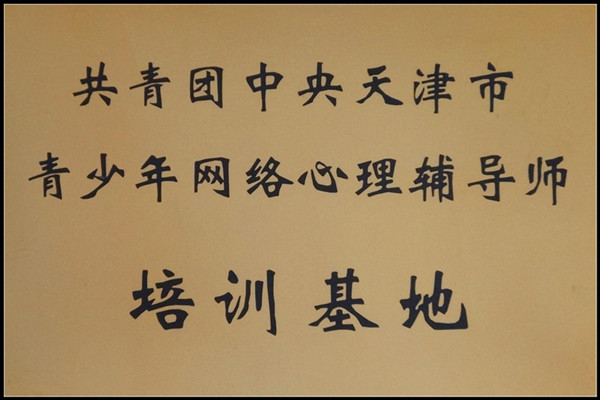 共青团中央天津市
青少年网络心理辅导师
培训基地